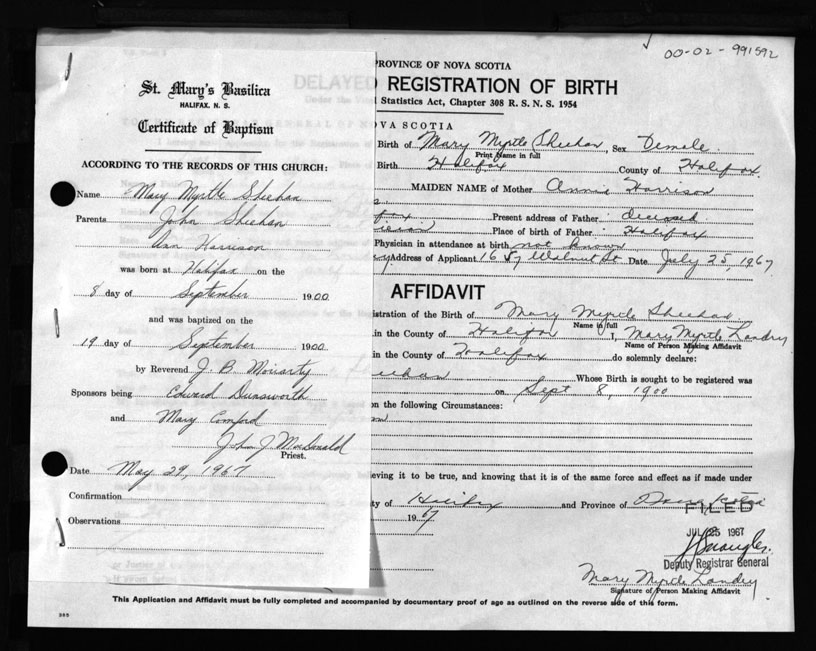 00-02-991592
St. Mary's Basilica
HALIFAX, N. S.
Certificate of Baptism
ACCORDING TO THE RECORDS OF THIS CHURCH:
Name Mary Myrtle Sheehan
Parents John Sheehan
Ann Harrison
was born at Halifax on the
8 day of September 1900
and was baptized on the
19 day of September 1900
by Reverend J. B. Moriarty
Sponsors being Edward Dunsworth
and Mary
John J. MacDonald
Priest.
Date May 29, 1967
Confirmation
Observations
PROVINCE OF NOVA SCOTIA
DELAYED REGISTRATION OF BIRTH
Statistics Act, Chapter 308 R. S. N. S. 1954
OVA SCOTIA
Birth of Mary Myrtle Sheehan, Sex Female.
Print Name in full
Birth Halifax County of Halifax.
MAIDEN NAME of Mother Annie Harrison
fax Present address of Father deceased
Place of birth of Father Halifax
Physician in attendance at birth not known
Address of Applicant 1657 Walnut St Date July 25, 1967
AFFIDAVIT
istration of the Birth of Mary Myrtle Sheehan
Name in full
in the County of Halifax I, Mary Myrtle Landry
Name of Person Making Affidavit
in the County of Halifax do solemnly declare:
Whose Birth is sought to be registered was
on Sept 8, 1900
on the following Circumstances:
eving it to be true, and knowing that it is of the same force and effect as if made under
ty of Halifax and Province of Nova Scotia
1967
FILED
JUL 25 1967
Deputy Registrar General
Mary Myrtle Landry
Signature of Person Making Affidavit
This Application and Affidavit must be fully completed and accompanied by documentary proof of age as outlined on the reverse side of this form.